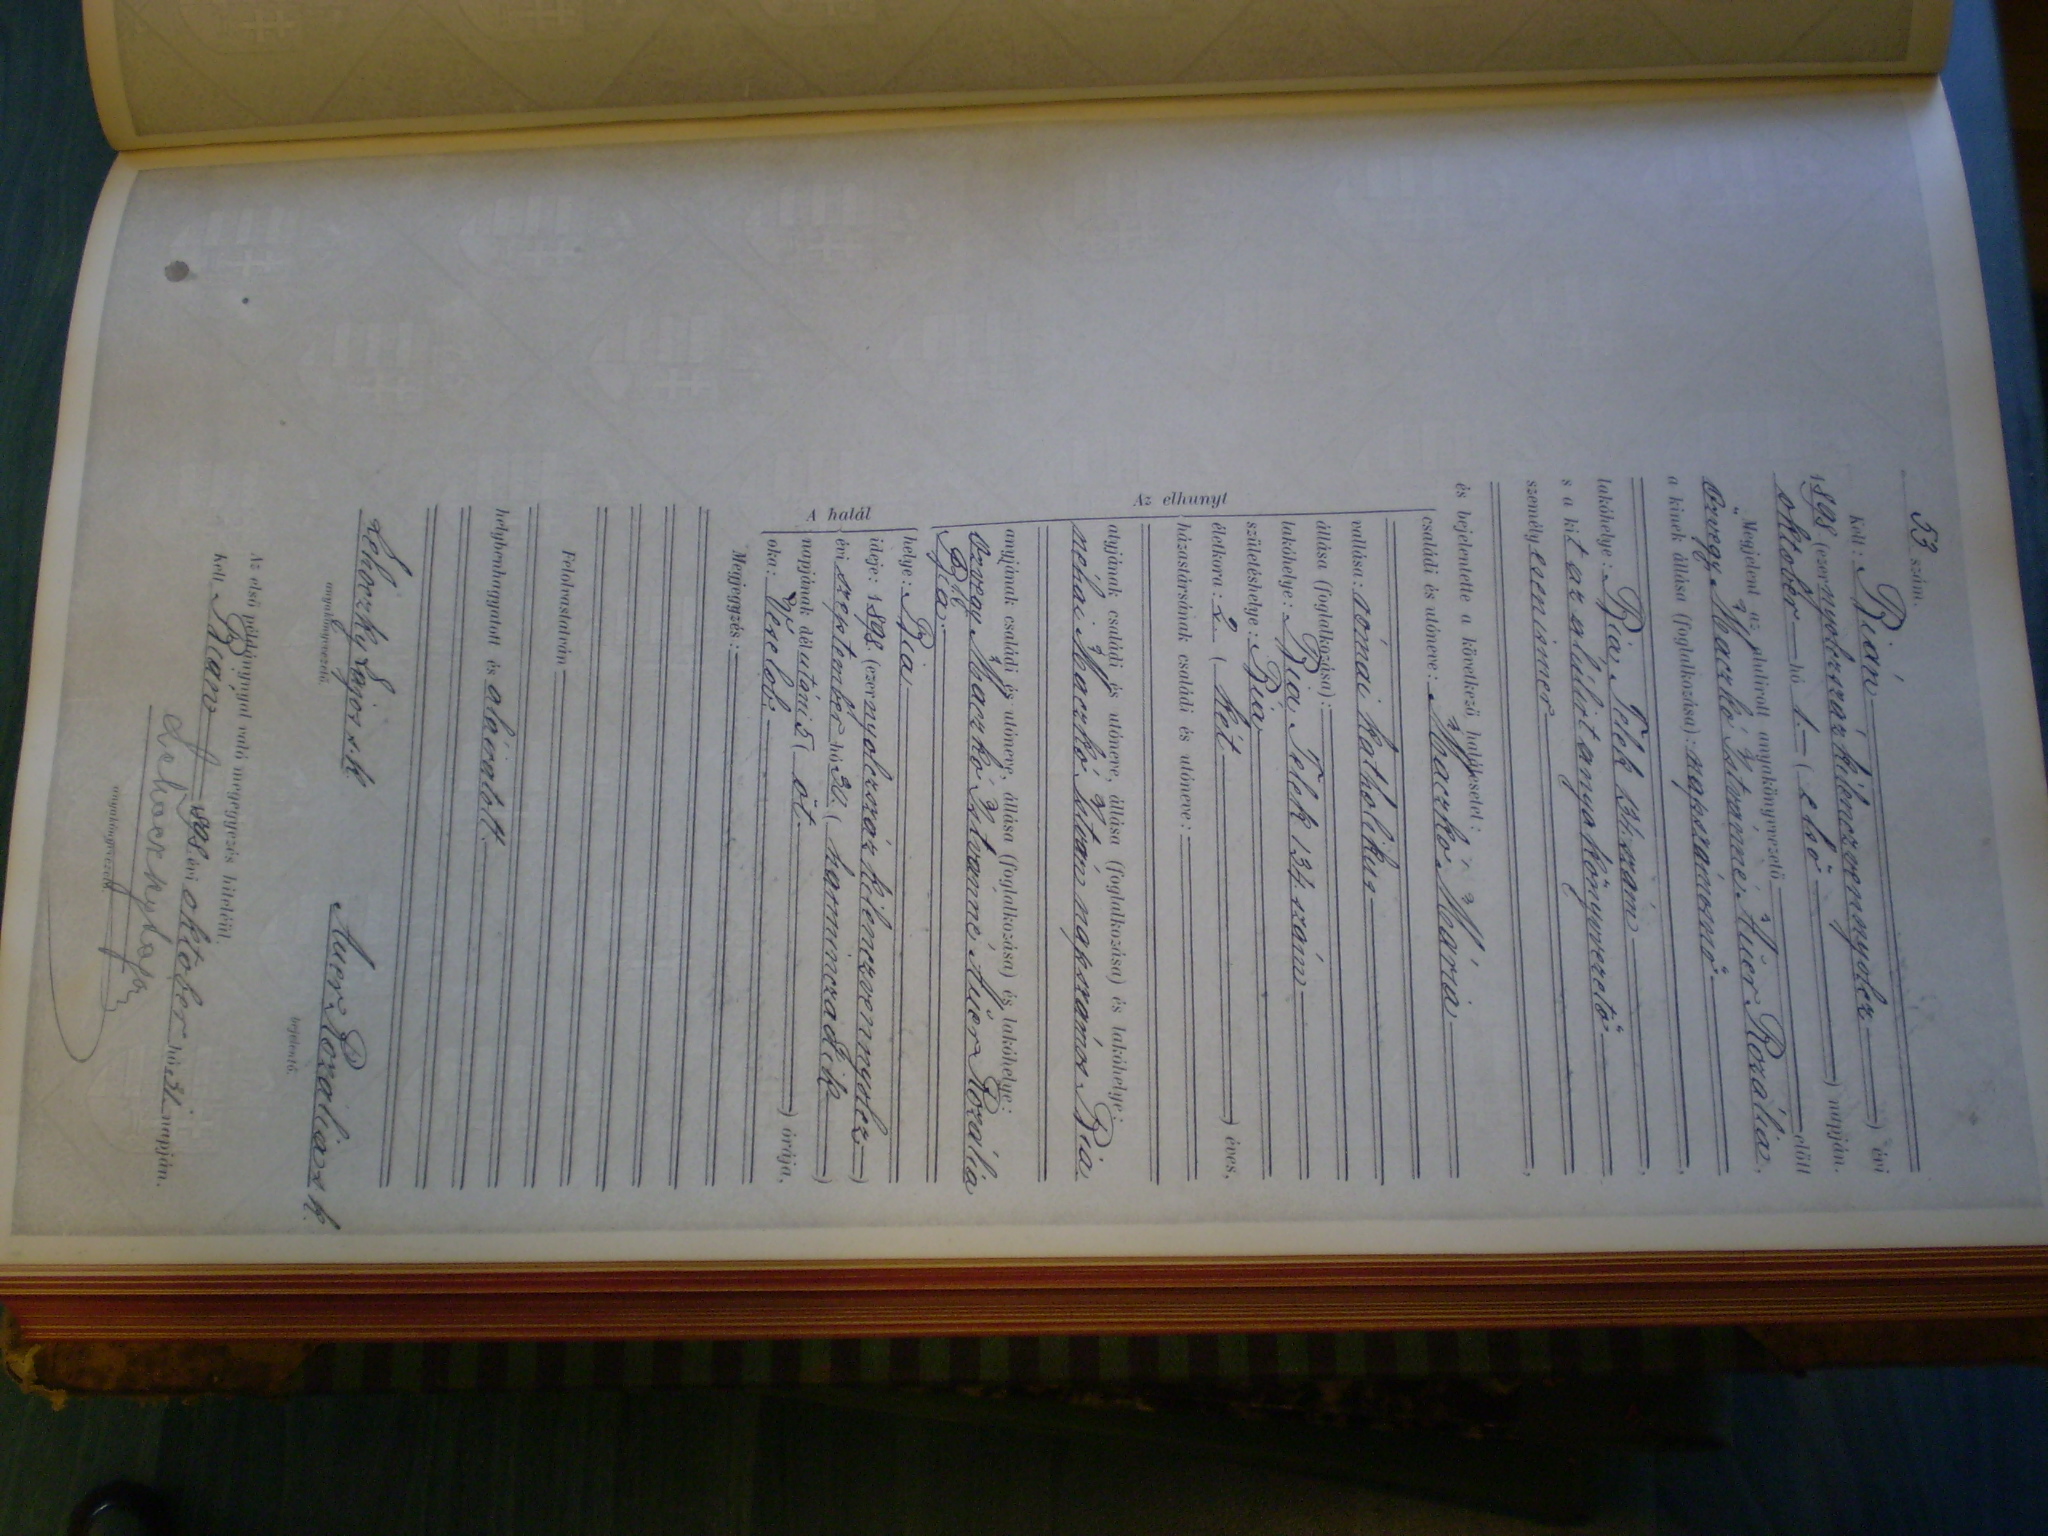 53 szám.
Kelt: Bián ) évi
1898 (ezernyolczszázkilenczvennyolcz
október hó 1. ( első ) napján.
Megjelent az alulirott anyakönyvvezető előtt
özvegy Maczkó Istvánné, Auer Rozália,
a kinek állása (foglalkozása): napszámosnő
lakóhelye: Bia Telek 134. szám
s a kit az alúlirt anyakönyvvezető
személyesen ismer
és bejelentette a következő halálesetet:
Az elhunyt
családi és utóneve: Maczkó Mária
vallása: római katholikus
állása (foglalkozása):
lakóhelye: Bia, Telek 134. szám
születéshelye: Bia
életkora: 2 ( két ) éves,
házastársának családi és utóneve:
atyjának családi és utóneve, állása (foglalkozása) és lakóhelye:
néhai Maczkó István napszámos Bia
anyjának családi és utóneve, állása (foglalkozása) és lakóhelye:
özvegy Maczkó Istvánné Auer Rozália
Bia.
A halál
helye: Bia
ideje: 1898. (ezernyolczszázkilenczvennyolcz)
évi szeptember hó 30. ( harminczadik )
napjának délutáni 5 ( öt ) órája,
oka: Veselob.
Megjegyzés:
Felolvastatván
helybenhagyatott és aláiratott.
Lehoczky Lajos s.k. Auer Rozália s.k.
anyakönyvvezető. bejelentő.
Az első példánynyal való megegyezés hiteléül.
Kelt Bián 1898. évi október hó 31. napján.
Lehoczky Lajos
anyakönyvvezető